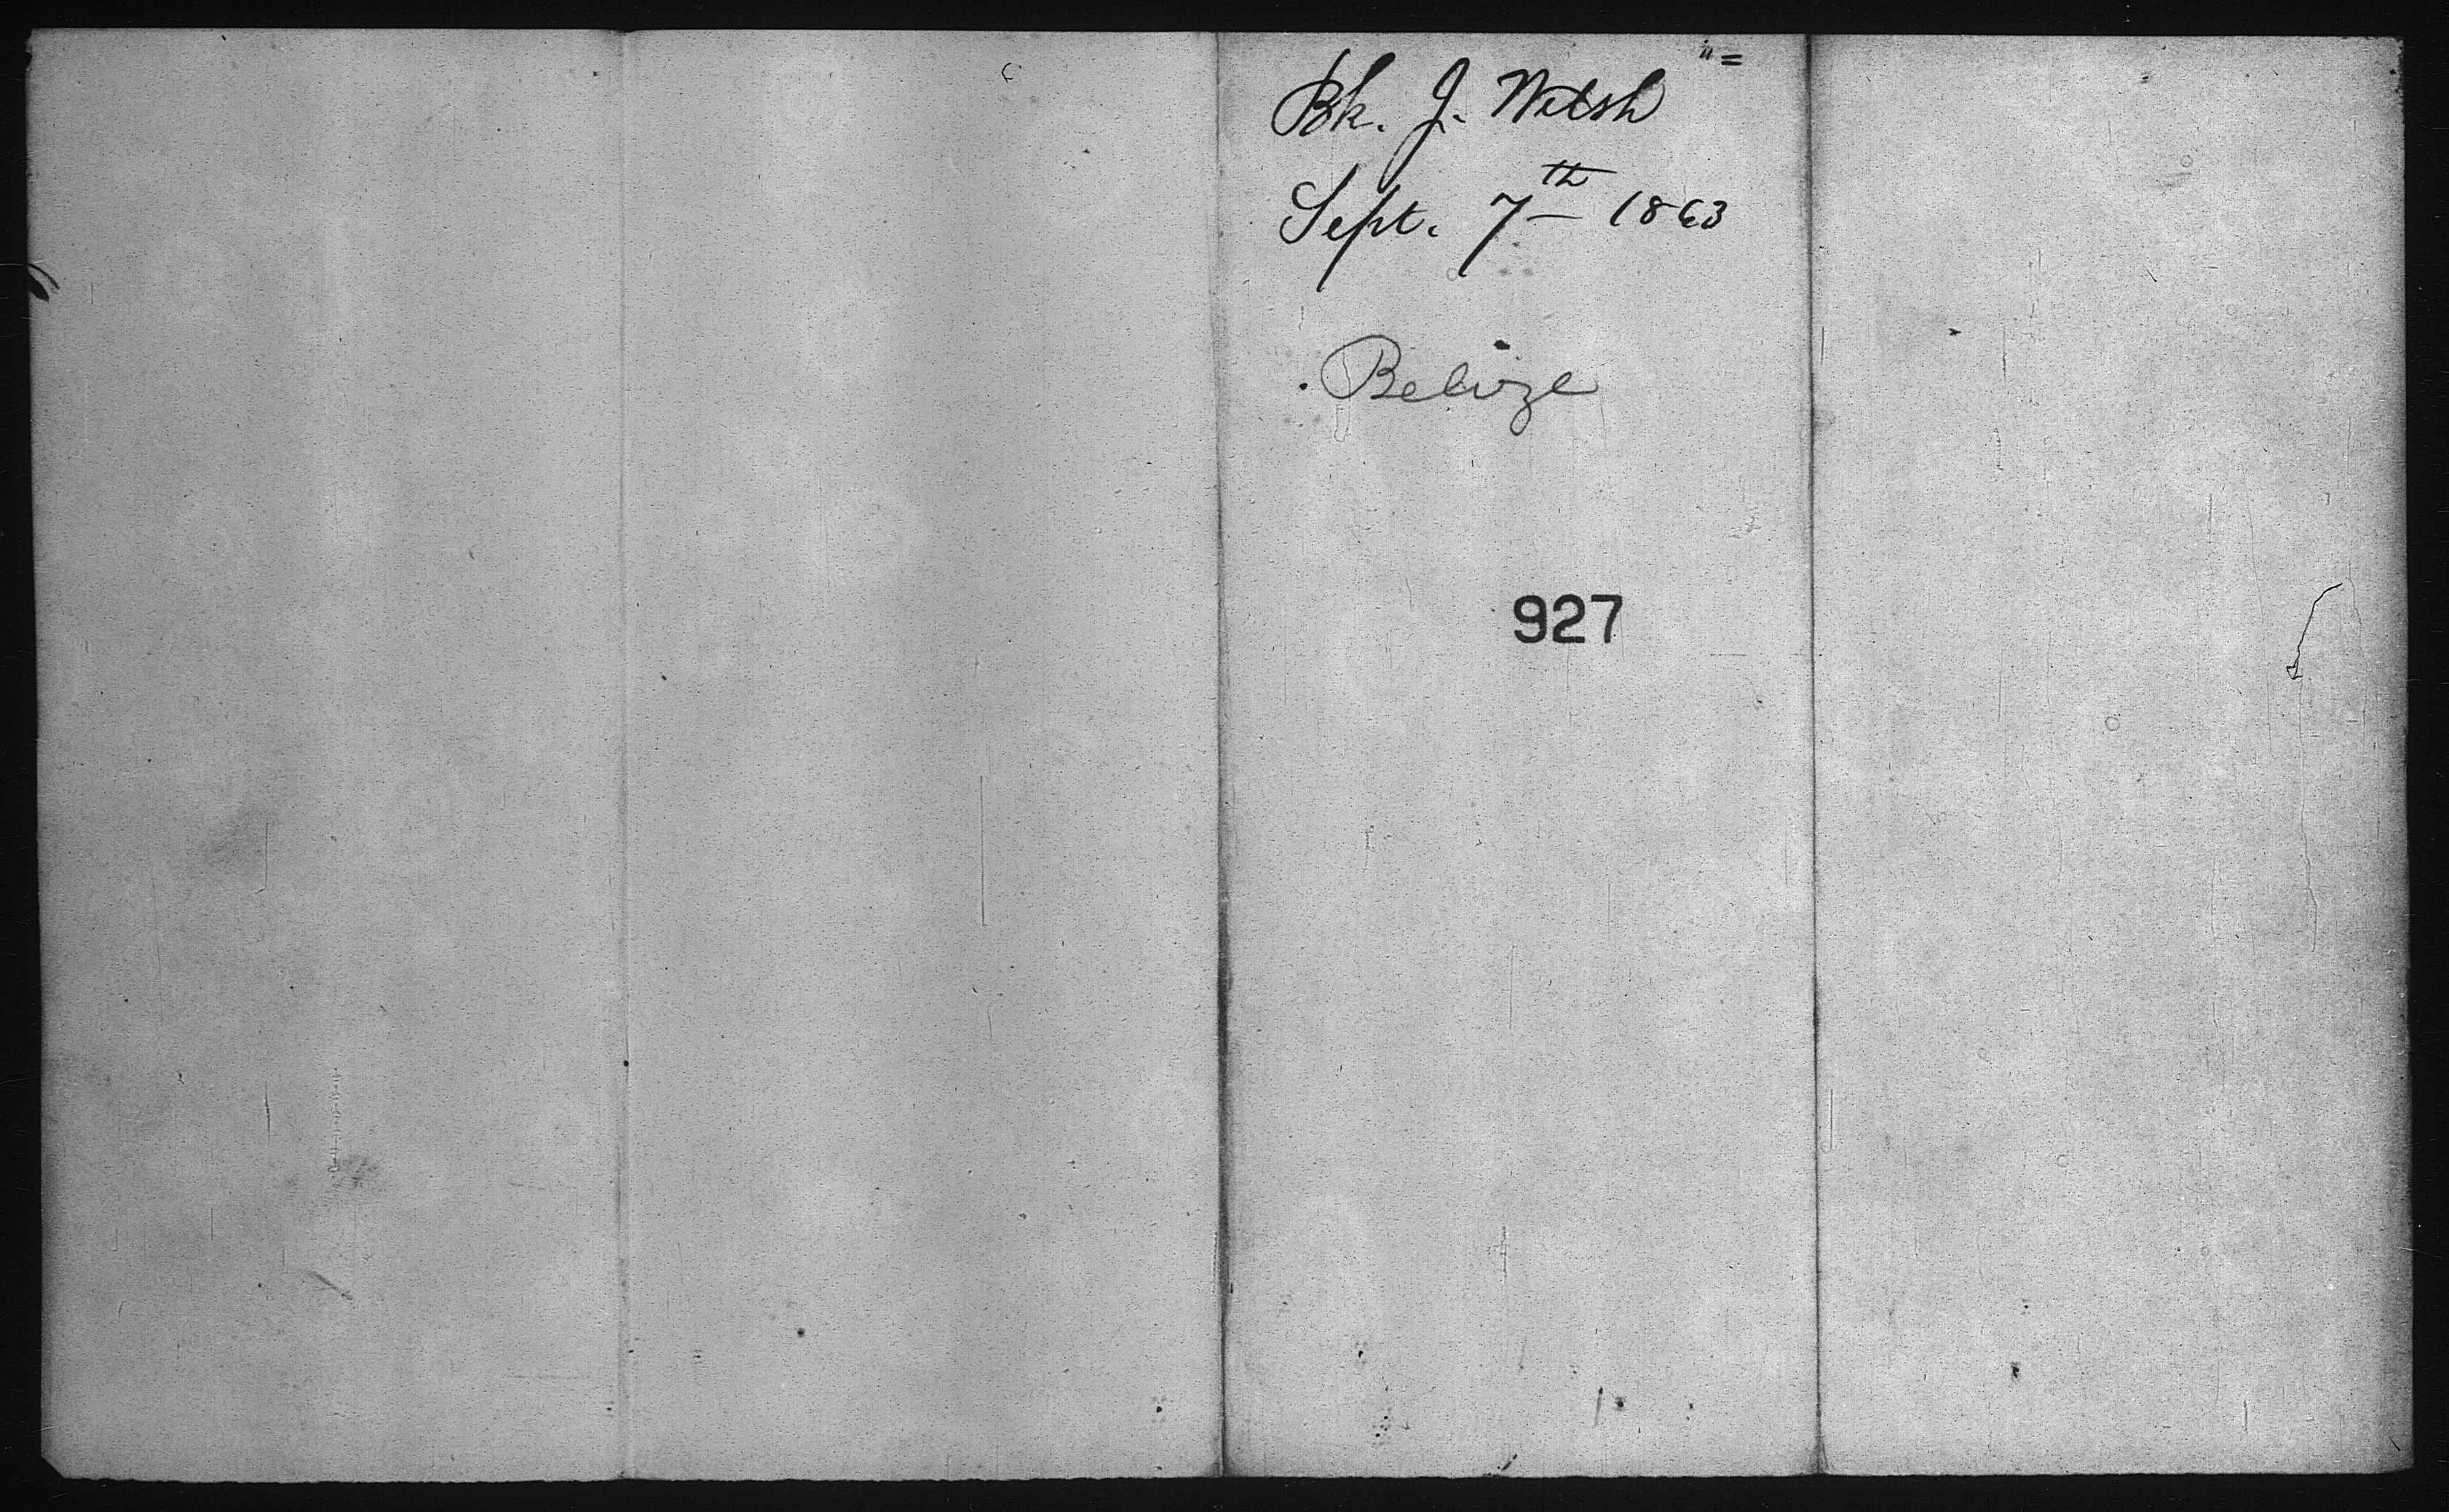 Bk. J. Welsh
Sept. 7th 1863
Belize
927